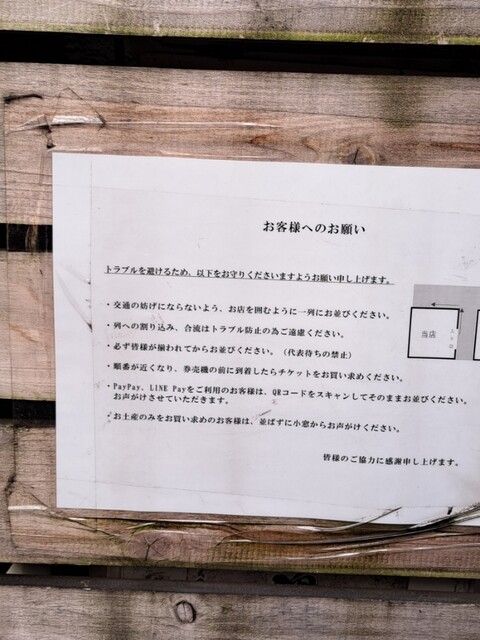 お客様へのお願い
トラブルを避けるため、以下をお守りくださいますようお願い申し上げます。
・交通の妨げにならないよう、お店を囲むように一列にお並びください。
・列への割り込み、合流はトラブル防止の為ご遠慮ください。
・必ず皆様が揃われてからお並びください。（代表待ちの禁止）
・順番が近くなり、券売機の前に到着したらチケットをお買い求めください。
・PayPay、LINE Payをご利用のお客様は、QRコードをスキャンしてそのままお並びください。
お声がけさせていただきます。
・お土産のみをお買い求めのお客様は、並ばずに小窓からお声がけください。
皆様のご協力に感謝申し上げます。
当店
入り口